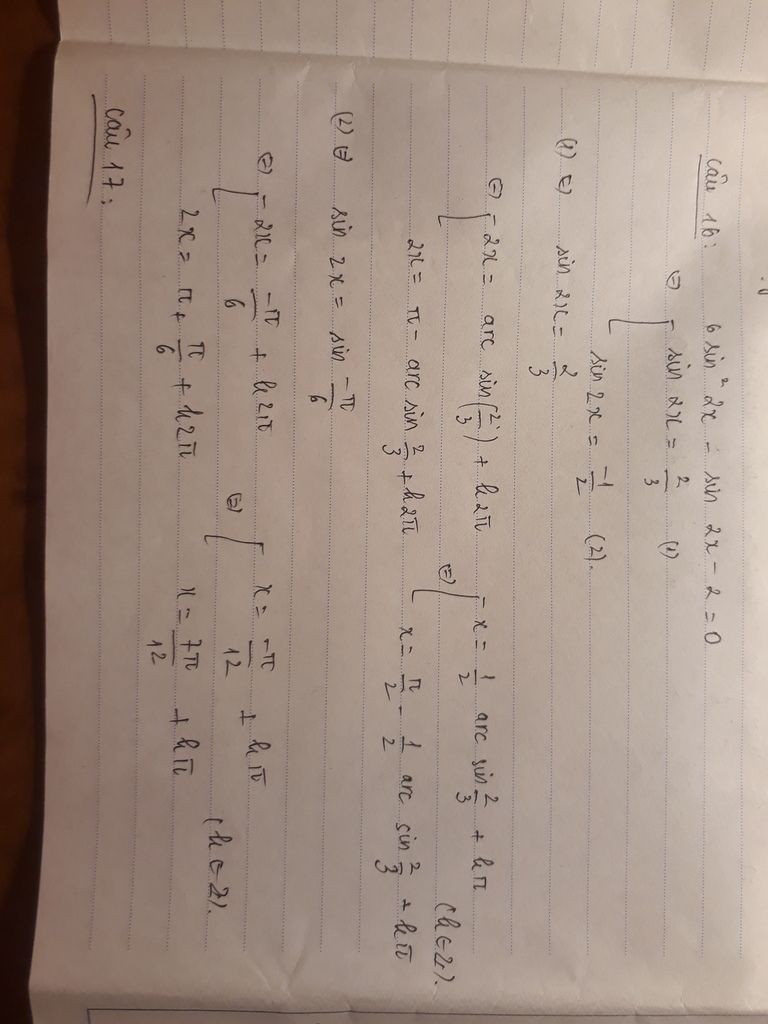 Câu 16: 6 sin² 2x - sin 2x - 2 = 0
⇔ [ sin 2x = 2/3 (1)
sin 2x = -1/2 (2).
(1) ⇔ sin 2x = 2/3
⇔ [ 2x = arc sin(2/3) + k2π ⇔ [ x = 1/2 arc sin 2/3 + kπ
2x = π - arc sin 2/3 + k2π x = π/2 - 1/2 arc sin 2/3 + kπ (k ∈ Z).
(2) ⇔ sin 2x = sin -π/6
⇔ [ 2x = -π/6 + k2π ⇔ [ x = -π/12 + kπ
2x = π + π/6 + k2π x = 7π/12 + kπ (k ∈ Z).
Câu 17: